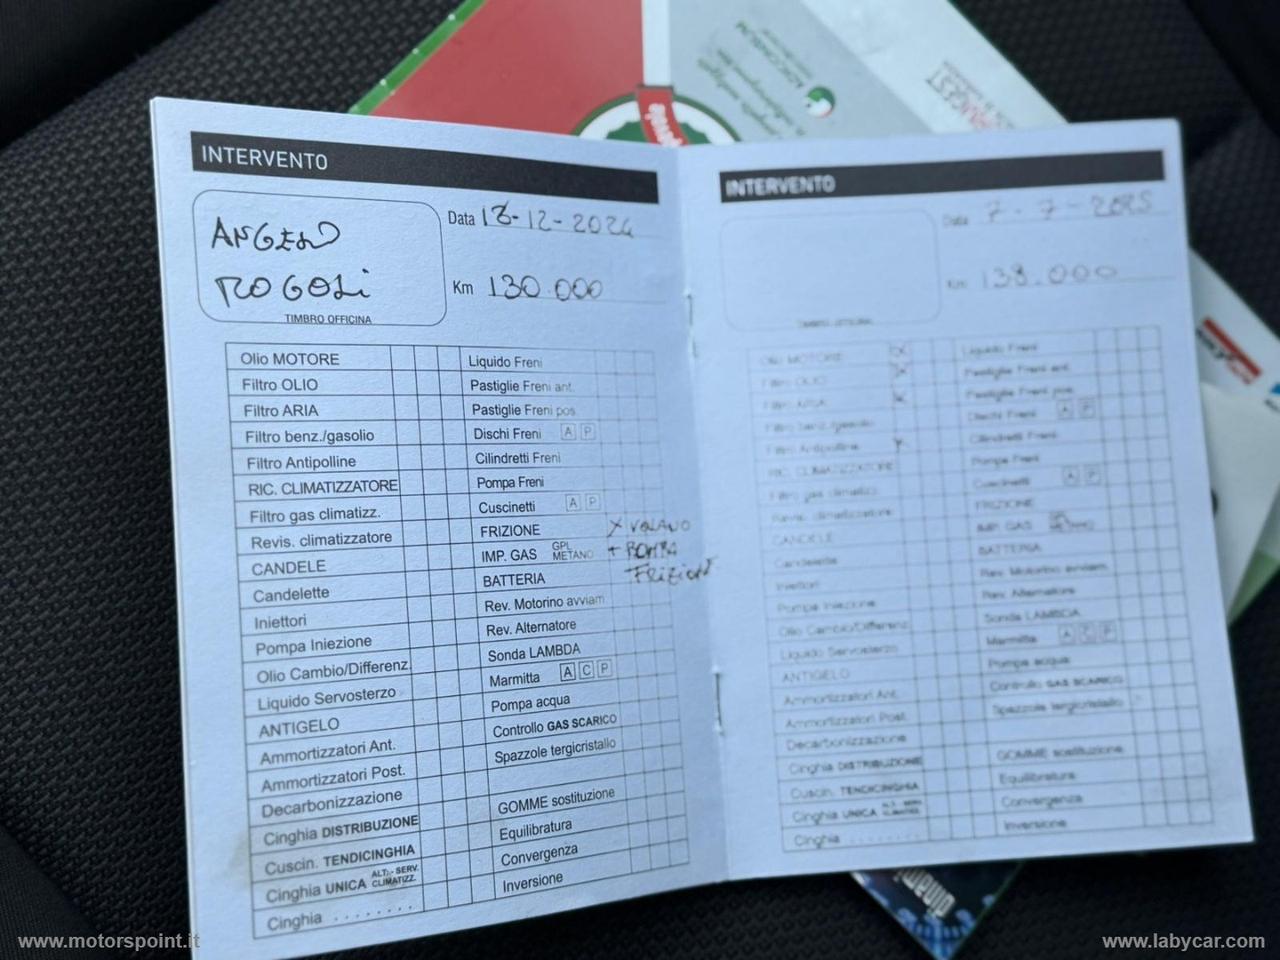 INTERVENTO
ANGELO
ROGOLI
TIMBRO OFFICINA
Data 13-12-2024
Km 130.000
Olio MOTORE
Filtro OLIO
Filtro ARIA
Filtro benz./gasolio
Filtro Antipolline
RIC. CLIMATIZZATORE
Filtro gas climatizz.
Revis. climatizzatore
CANDELE
Candelette
Iniettori
Pompa Iniezione
Olio Cambio/Differenz.
Liquido Servosterzo
ANTIGELO
Ammortizzatori Ant.
Ammortizzatori Post.
Decarbonizzazione
Cinghia DISTRIBUZIONE
Cuscin. TENDICINGHIA
Cinghia UNICA ALT.- SERV. CLIMATIZZ.
Cinghia ........
Liquido Freni
Pastiglie Freni ant.
Pastiglie Freni pos.
Dischi Freni A P
Cilindretti Freni
Pompa Freni
Cuscinetti A P
FRIZIONE X VOLANO
IMP. GAS GPL METANO + POMPA
FRIZIONE
BATTERIA
Rev. Motorino avviam.
Rev. Alternatore
Sonda LAMBDA
Marmitta A C P
Pompa acqua
Controllo GAS SCARICO
Spazzole tergicristallo
GOMME sostituzione
Equilibratura
Convergenza
Inversione
INTERVENTO
TIMBRO OFFICINA
Data 7-7-2025
Km 138.000
Olio MOTORE X
Filtro OLIO X
Filtro ARIA X
Filtro benz./gasolio
Filtro Antipolline X
RIC. CLIMATIZZATORE
Filtro gas climatizz.
Revis. climatizzatore
CANDELE
Candelette
Iniettori
Pompa Iniezione
Olio Cambio/Differenz.
Liquido Servosterzo
ANTIGELO
Ammortizzatori Ant.
Ammortizzatori Post.
Decarbonizzazione
Cinghia DISTRIBUZIONE
Cuscin. TENDICINGHIA
Cinghia UNICA ALT.- SERV. CLIMATIZZ.
Cinghia ........
Liquido Freni
Pastiglie Freni ant.
Pastiglie Freni pos.
Dischi Freni A P
Cilindretti Freni
Pompa Freni
Cuscinetti A P
FRIZIONE
IMP. GAS GPL METANO
BATTERIA
Rev. Motorino avviam.
Rev. Alternatore
Sonda LAMBDA
Marmitta A C P
Pompa acqua
Controllo GAS SCARICO
Spazzole tergicristallo
GOMME sostituzione
Equilibratura
Convergenza
Inversione
www.motorspoint.it
www.labycar.com